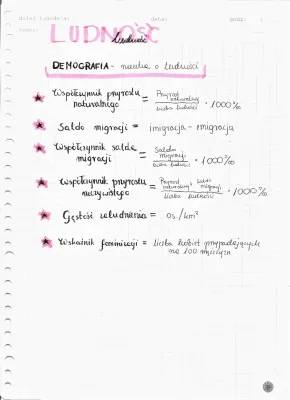 LUDNOŚĆ
Ludność
DEMOGRAFIA - nauka o ludności
Współczynnik przyrostu naturalnego = Przyrost naturalny / liczba ludności · 1000‰
Saldo migracji = imigracja - emigracja
Współczynnik salda migracji = Saldo migracji / liczba ludności · 1000‰
Współczynnik przyrostu rzeczywistego = Przyrost naturalny + saldo migracji / liczba ludności · 1000‰
Gęstość zaludnienia = os./km²
Wskaźnik feminizacji = liczba kobiet przypadających
na 100 mężczyzn